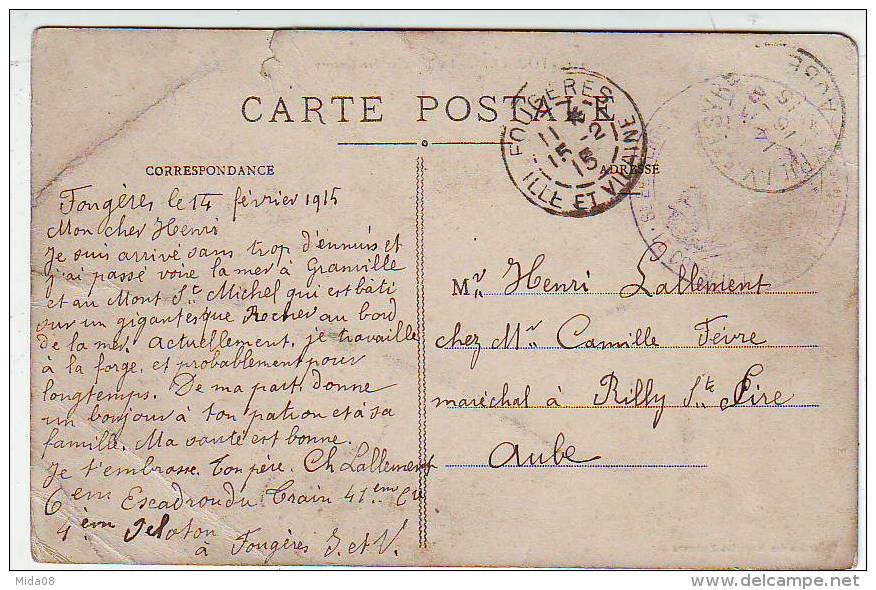 CARTE POSTALE
CORRESPONDANCE
ADRESSE
FOUGERES
ILLE ET VILAINE
11
15 -2
15
AUBE
Fougères le 14 février 1915
Mon cher Henri
Je suis arrivé sans trop d'ennuis et
j'ai passé voire la mer à Granville
et au Mont St Michel qui est bâti
sur un gigantesque Rocher au bord
de la mer. Actuellement, je travaille
à la forge, et probablement pour
longtemps. De ma part, donne
un bonjour à ton patron et à sa
famille. Ma santé est bonne.
Je t'embrasse. Ton père. Ch Lallement
6 em Escadron du Train 41 em Cie
4 ème Peloton
à Fougères I. et V.
Mr Henri Lallement
chez Mr Camille Fèvre
maréchal à Rilly Ste Sire
Aube
Mida08
delcampe.net